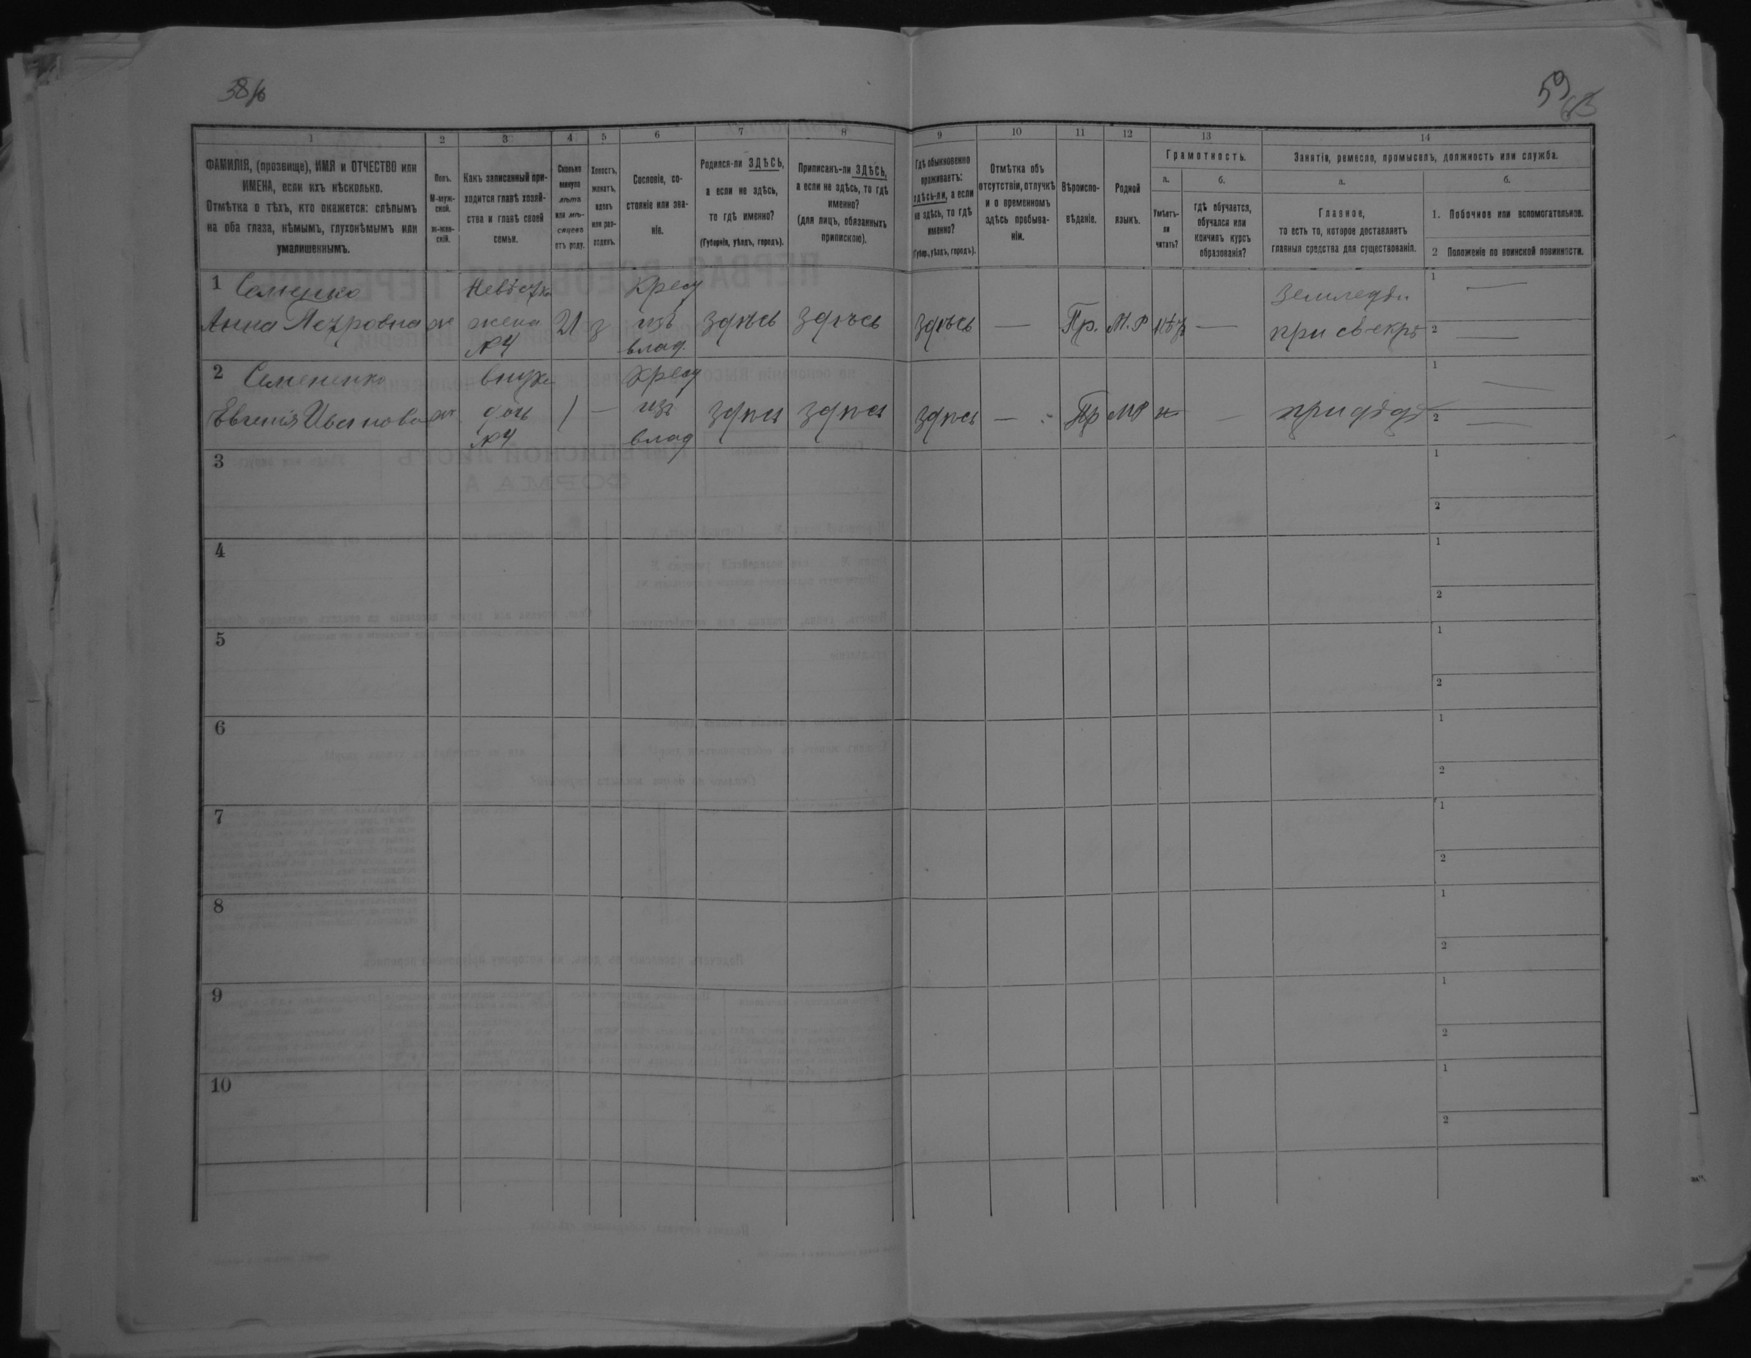 38 об
59
1
2
3
4
5
6
7
8
9
10
11
12
13
14
ФАМИЛІЯ, (прозвище), ИМЯ и ОТЧЕСТВО или
ИМЕНА, если ихъ нѣсколько.
Отмѣтка о тѣхъ, кто окажется: слѣпымъ
на оба глаза, нѣмымъ, глухонѣмымъ или
умалишеннымъ.
Полъ.
М-муж-
ской.
ж-жен-
скій.
Какъ записанный при-
ходится главѣ хозяй-
ства и главѣ своей
семьи.
Сколько
минуло
лѣтъ
или мѣ-
сяцевъ
отъ роду.
Холостъ,
женатъ,
вдовъ
или раз-
веденъ.
Сословіе, со-
стояніе или зва-
ніе.
Родился-ли ЗДѢСЬ,
а если не здѣсь,
то гдѣ именно?
(Губернія, уѣздъ, городъ).
Приписанъ-ли ЗДѢСЬ,
а если не здѣсь, то гдѣ
именно?
(для лицъ, обязанныхъ
припискою).
Гдѣ обыкновенно
проживаетъ:
здѣсь-ли, а если
не здѣсь, то гдѣ
именно?
(Губер., уѣздъ, городъ).
Отмѣтка объ
отсутствіи, отлучкѣ
и о временномъ
здѣсь пребыва-
ніи.
Вѣроиспо-
вѣданіе.
Родной
языкъ.
Грамотность.
а.
Умѣетъ-
ли
читать?
б.
гдѣ обучается,
обучался или
кончилъ курсъ
образованія?
Занятіе, ремесло, промыселъ, должность или служба.
а.
Главное,
то есть то, которое доставляетъ
главныя средства для существованія.
б.
1. Побочное или вспомогательное.
2 Положеніе по воинской повинности.
1 Семенко
Анна Петровна
ж
Невѣстка
жена
№4
21
з
Крест
изъ
влад.
здѣсь
здѣсь
здѣсь
—
Пр.
М.Р
нѣт
—
Земледѣл.
при свекрѣ
1 —
2 —
2 Семененко
Евгенія Иванова
ж
внучка
дочь
№4
1
—
Крест
изъ
влад
здѣсь
здѣсь
здѣсь
—
Пр
МР
н
—
при дѣдѣ
1 —
2 —
3
1
2
4
1
2
5
1
2
6
1
2
7
1
2
8
1
2
9
1
2
10
1
2